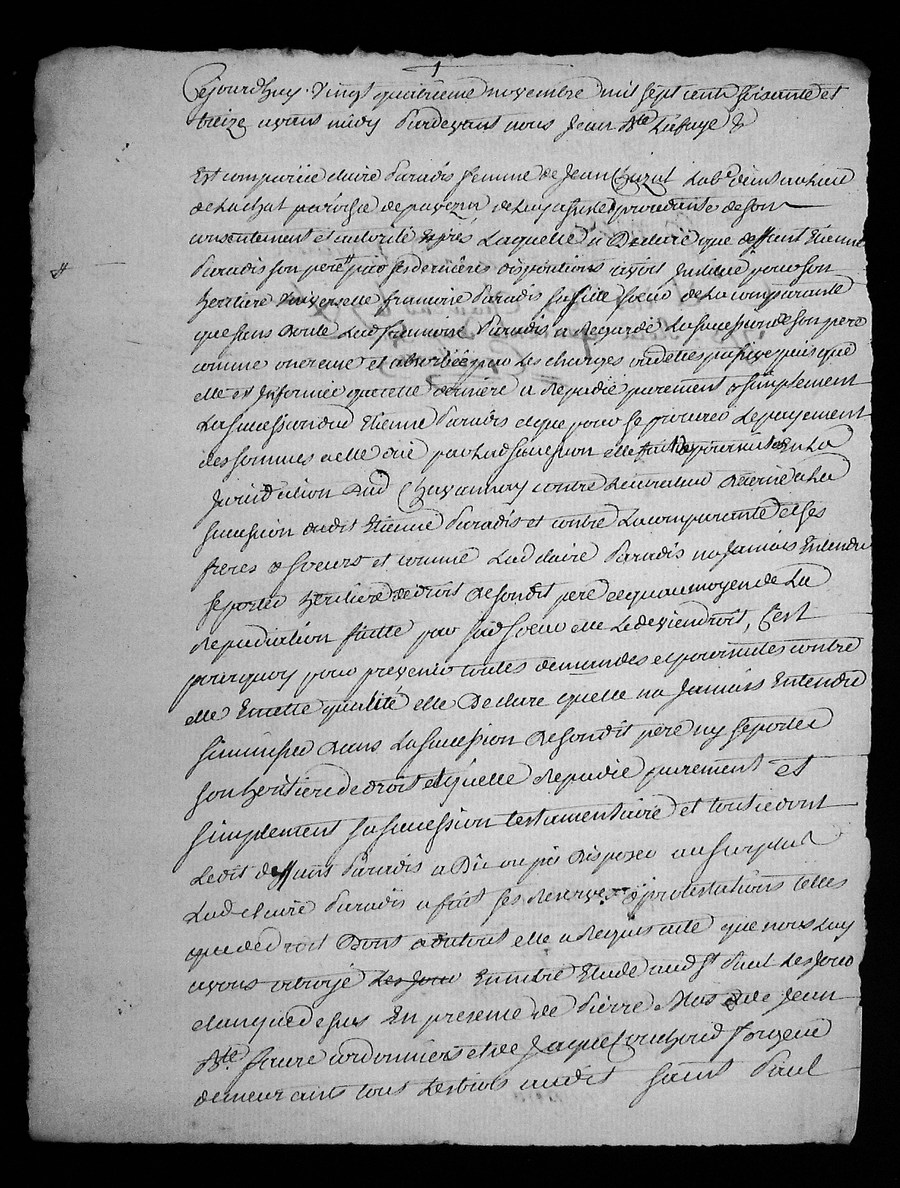 Cejourdhuy vingt quatrieme novembre mil sept cent soixante et
treize avant midy Pardevant nous Jean Bte Lafaye &
Est comparüe claire Paradis femme de Jean Labr demt au lieu
de Lachat paroisse de procedante de son
consentement et autorité Laquelle a Declaré que deffunt Etienne
Paradis son pere par ses dernieres dispositions avoit Institué pour son
heritiere universelle francoise Paradis sa fille soeur de La comparante
que sans doute Lad francoise Paradis a Regardé La succession de son pere
comme onereuse et absorbée par Les charges ou dettes passives puis que
elle est Informée que cette derniere a Repudié purement & simplement
La succession dud Etienne Paradis et que pour se procurer Le payement
des sommes a elle düe par Lad succession elle fait des poursuites en La
Jurisdiction dud Chavannay contre Le curateur decerné a La
succession dudit Etienne Paradis et contre La comparante et ses
freres & soeurs et comme Lad claire Paradis na Jamais Entendu
se porter heritiere de droit de sondit pere et qu'au moyen de La
Repudiation faitte par sad soeur elle Le deviendroit, C'est
pourquoy pour prevenir toutes demandes et poursuites contre
elle En cette qualité elle Declare quelle na Jamais Entendu
simmiscer dans La succession de sondit pere ny se porter
son heritiere de droit et quelle Repudie purement et
simplement sa succession testamentaire et tout ce dont
Ledit deffunt Paradis a Dû ou pû disposer au surplus
Lad claire Paradis a fait ses Reserves & protestations telles
que de droit Dont du tout elle a Requis acte que nous Luy
avons octroyé Les Jour En notre Etude aud St Paul Les Jour
et an que dessus En presence de Pierre Mas & de Jean
Bte faure cordonniers et de Jaque
demeurants tout Lesdits audit Saint Paul